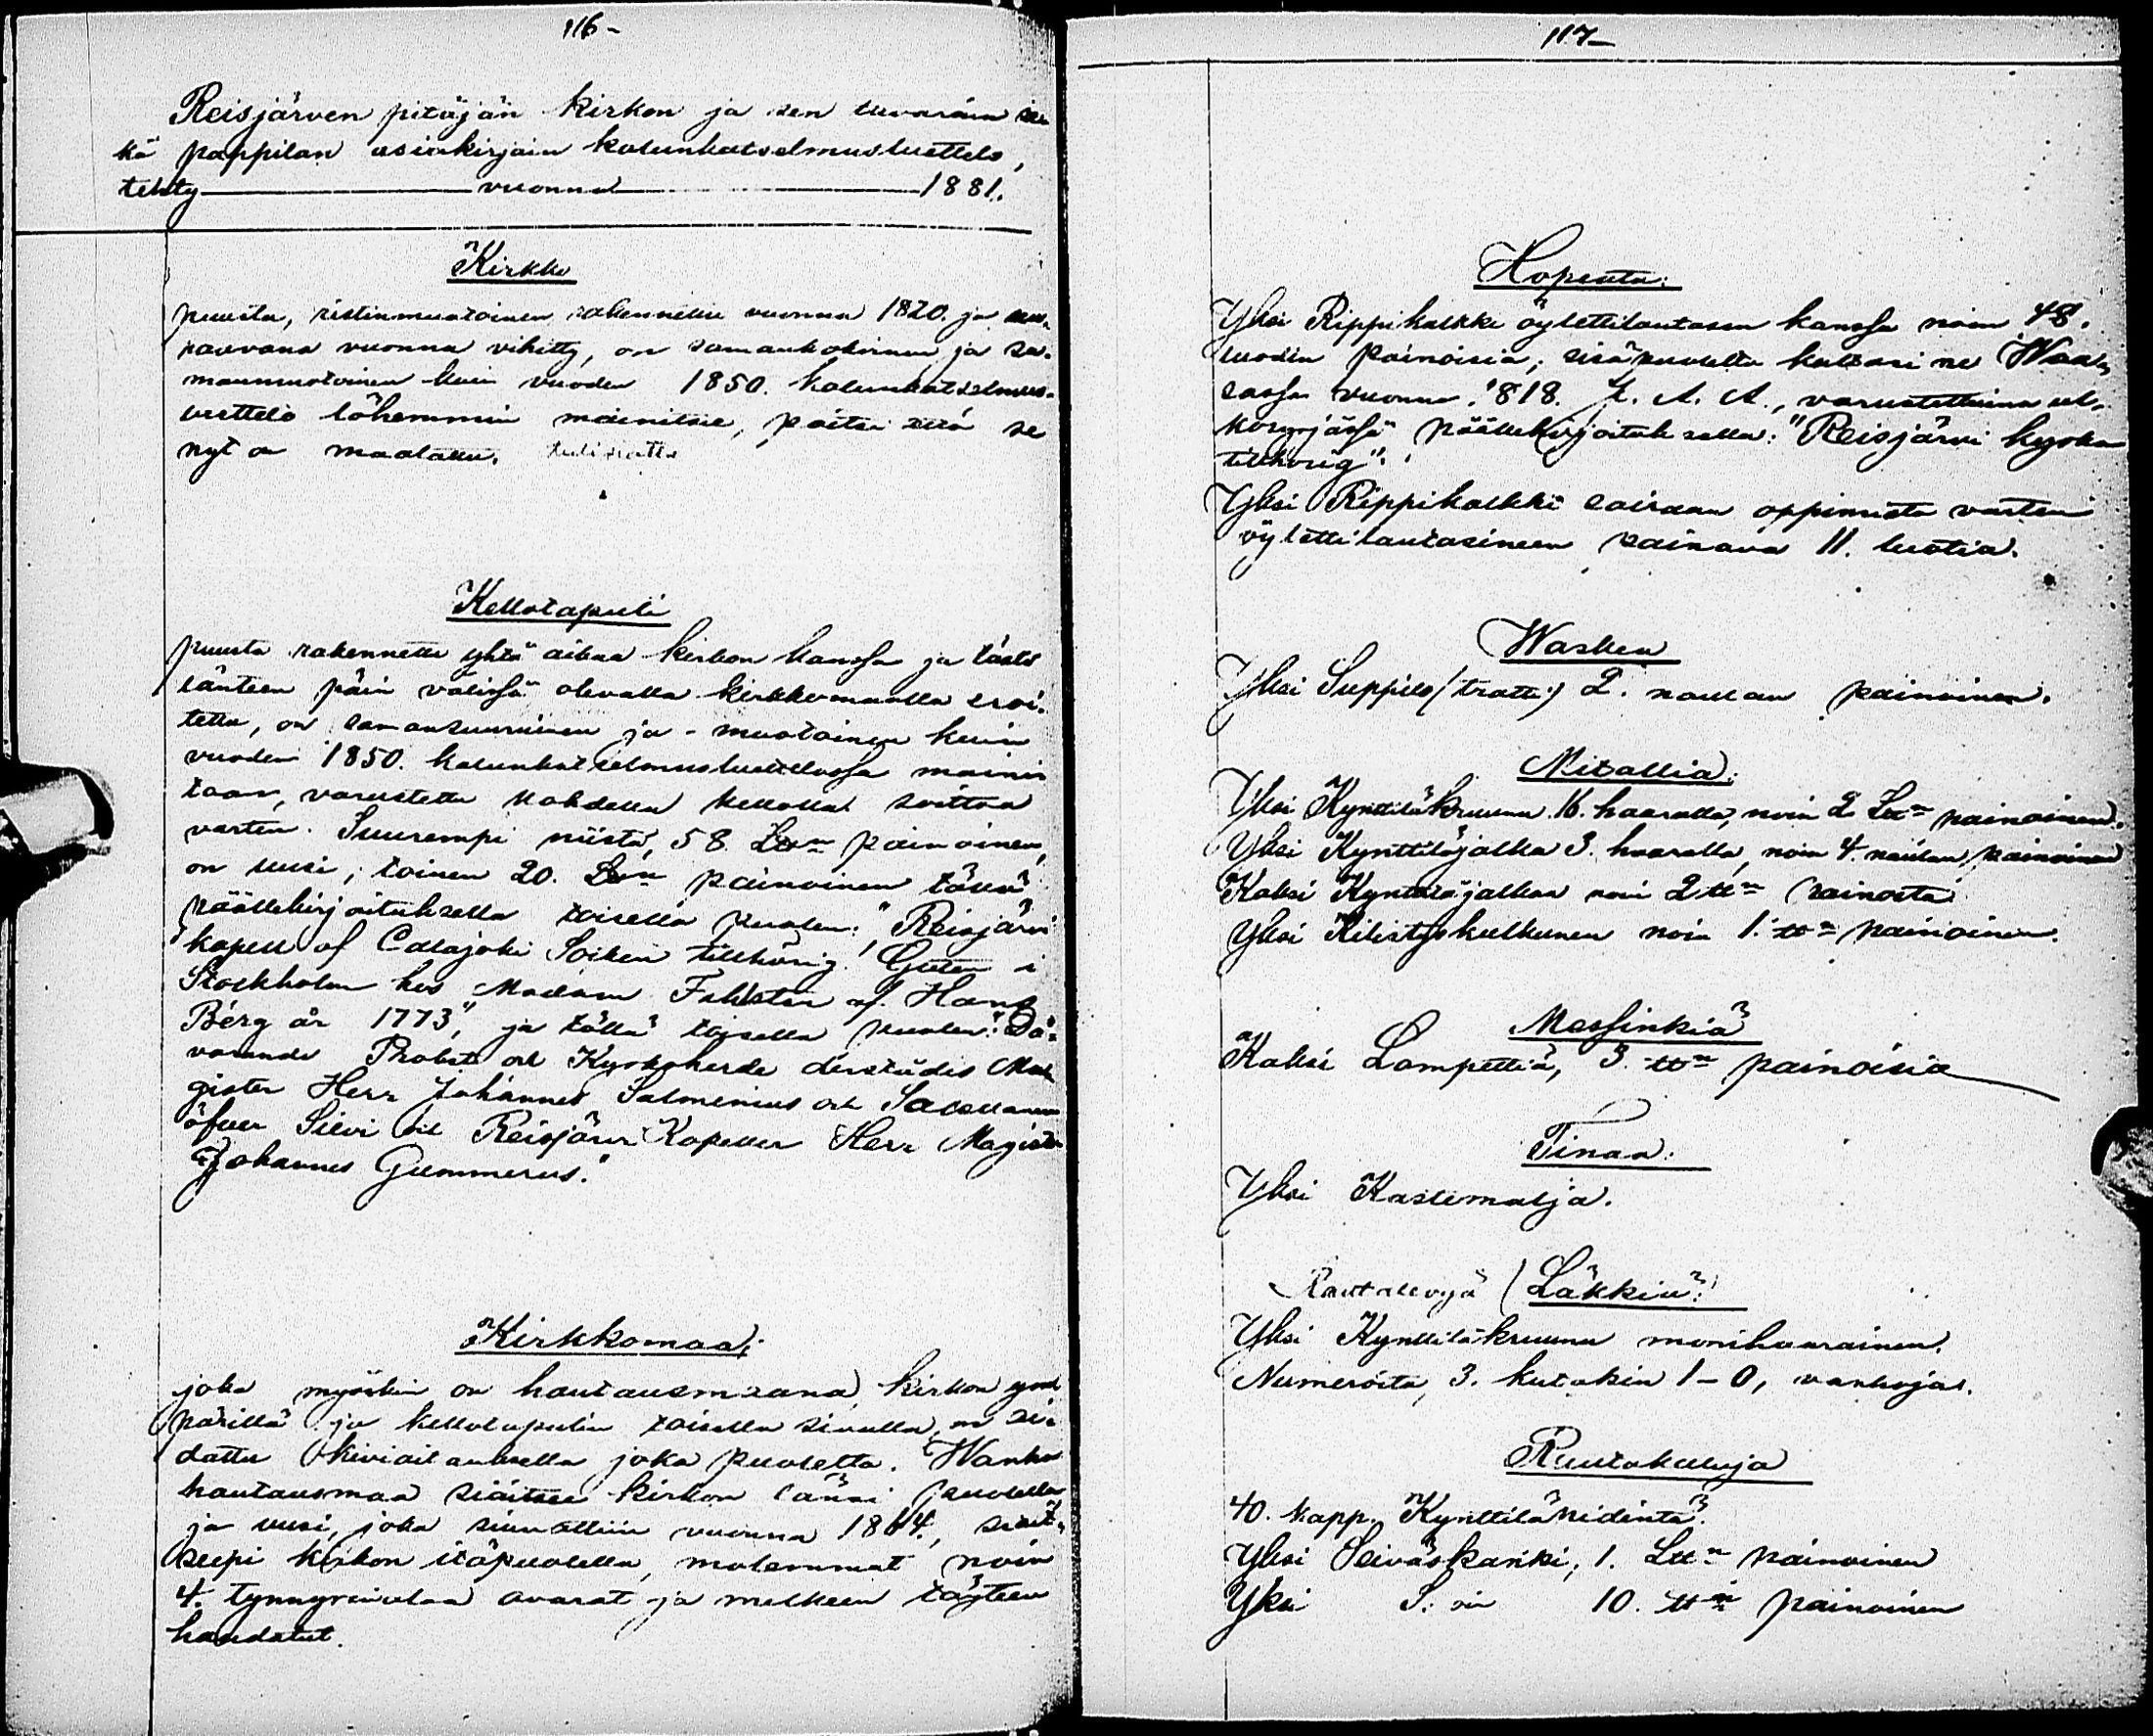 116-
Reisjärven pitäjän kirkon ja sen tavaräin se-
kä pappilan asiakirjain kalunkatselmusluettelo,
tehty vuonna 1881.
Kirkko
puusta, ristinmuotoinen, rakennettu vuonna 1820. ja seu-
raavana vuonna vihitty, on samankokoinen ja sa-
manmuotoinen kuin vuoden 1850. kalunkatselmus-
luettelo lähemmin mainitsee, paitsi että se
nyt on maalattu.
Kellotapuli
puusta rakennettu yhtä aikaa kirkon kanssa ja tästä
länteen päin välissä olevalla kirkkomaalla eroi-
tettu, on samansuuruinen ja -muotoinen kuin
vuoden 1850. kalunkatselmusluettelossa maini-
taan, varustettu kahdella kellolla soittoa
varten. Suurempi niistä, 58. L℔n painoinen,
on uusi; toinen 20. L℔n painoinen tällä
päällekirjoituksella toisella puolen: "Reisjärvi
kapell af Calajoki Soken tillhörig. Guten i
Stockholm hos Madam Fahlsten af Hans
Berg år 1773", ja tällä toisella puolen: "Då-
varande Probst och Kyrkoherde derstädes Ma-
gister Herr Johannes Salmenius och Sacellanen
öfver Sievi och Reisjärvi Kapeller Herr Magister
Johannes Gummerus."
Kirkkomaa;
joka myöskin on hautausmaana, kirkon ym-
pärillä ja kellotapulin toisella sivulla, on ai-
dattu kiviaitauksella joka puolelta. Wanha
hautausmaa siaitsee kirkon länsi puolella
ja uusi, joka siunattiin vuonna 1864, siait-
seepi kirkon itäpuolella, molemmat noin
4. tynnyrinalaa avarat ja melkein täyteen
haudatut.
117-
Hopeata:
Yksi Rippikalkki öylettilautasen kanssa noin 48.
luodin painoisia; sisäpuolelta kullasi ne Waa-
sassa vuonna 1818. J. A. A., varustettuina ul-
kosyrjässä päällekirjoituksella: "Reisjärvi kyrka
tillhörig".
Yksi Rippikalkki sairaan oppimista varten
öylettilautasineen painava 11. luotia.
Wasken
Yksi Suppilo (tratti) 2. naulan painoinen.
Mitallia:
Yksi Kynttiläkruunu 16. haaralla, noin 2 L℔n painoinen.
Yksi Kynttiläjalka 3. haaralla, noin 4. naulan painoinen
Kaksi Kynttiläjalkaa noin 2 ℔n painosta
Yksi Kilistyskulkunen noin 1. ℔n painoinen.
Messinkiä
Kaksi Lampettiä, 3. ℔n painoisia
Tinaa:
Yksi Kastemalja.
Rautalevyä (Läkkiä:)
Yksi Kynttiläkruunu monihaarainen.
Numeroita, 3. kutakin 1-0, vanhoja.
Rautakaluja
40. kapp. Kynttilänidintä.
Yksi Seiväskanki, 1. L℔n painoinen
Yksi S: oin 10. ℔n painoinen